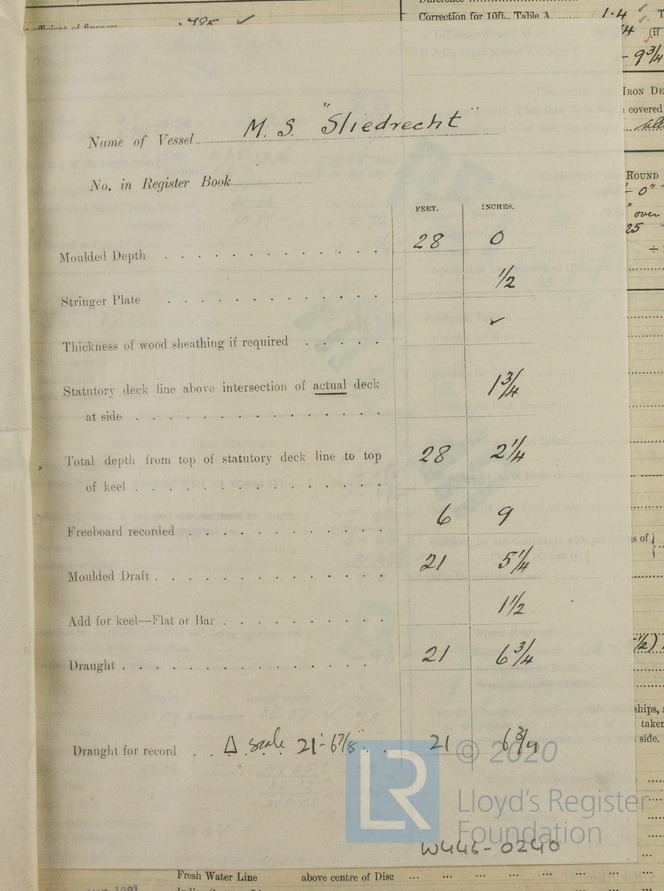 Correction for 10ft., Table A ...... 1·4
·785 ✓
9 3/4
IRON DE
covered
Name of Vessel M. S. "Sliedrecht"
No. in Register Book
ROUND
FEET. INCHES.
"over
25
Moulded Depth 28 0
Stringer Plate 1/2
Thickness of wood sheathing if required ✓
Statutory deck line above intersection of actual deck 1 3/4
at side
Total depth from top of statutory deck line to top 28 2 1/4
of keel
Freeboard recorded 6 9
s of
Moulded Draft 21 5 1/4
Add for keel—Flat or Bar 1 1/2
Draught 21 6 3/4
ships,
taken
side.
Draught for record Δ scale 21'-6 7/8 21 6 3/4
© 2020
LR
Lloyd's Register
Foundation
W446-0240
Fresh Water Line above centre of Disc